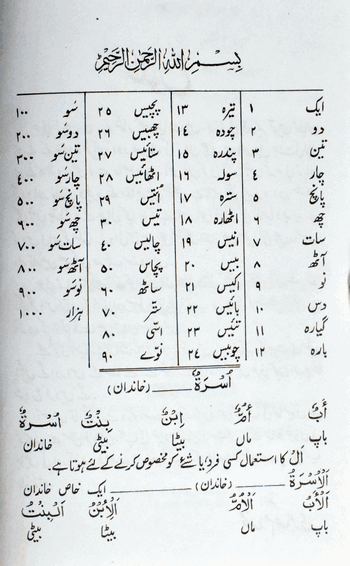 بسم اللہ الرحمٰن الرحیم
ایک ۱ تیرہ ۱۳ پچیس ۲۵ سَو ۱۰۰
دو ۲ چودہ ۱۴ چھبیس ۲۶ دو سَو ۲۰۰
تین ۳ پندرہ ۱۵ ستائیس ۲۷ تین سَو ۳۰۰
چار ۴ سولہ ۱۶ اٹھائیس ۲۸ چار سَو ۴۰۰
پانچ ۵ سترہ ۱۷ انتیس ۲۹ پانچ سَو ۵۰۰
چھ ۶ اٹھارہ ۱۸ تیس ۳۰ چھ سَو ۶۰۰
سات ۷ انیس ۱۹ چالیس ۴۰ سات سَو ۷۰۰
آٹھ ۸ بیس ۲۰ پچاس ۵۰ آٹھ سَو ۸۰۰
نو ۹ اکیس ۲۱ ساٹھ ۶۰ نو سَو ۹۰۰
دس ۱۰ بائیس ۲۲ ستّر ۷۰ ہزار ۱۰۰۰
گیارہ ۱۱ تئیس ۲۳ اسّی ۸۰
بارہ ۱۲ چوبیس ۲۴ نوّے ۹۰
اُسْرَةٌ (خاندان)
أَبٌ أُمٌّ اِبْنٌ بِنْتٌ اُسْرَةٌ
باپ ماں بیٹا بیٹی خاندان
اَلْ کا استعمال کسی فرد یا شئے کو مخصوص کرنے کے لئے ہوتا ہے۔
اَلْاُسْرَةُ (خاندان) ایک خاص خاندان
اَلْأَبُ اَلْأُمُّ اَلْاِبْنُ اَلْبِنْتُ
باپ ماں بیٹا بیٹی